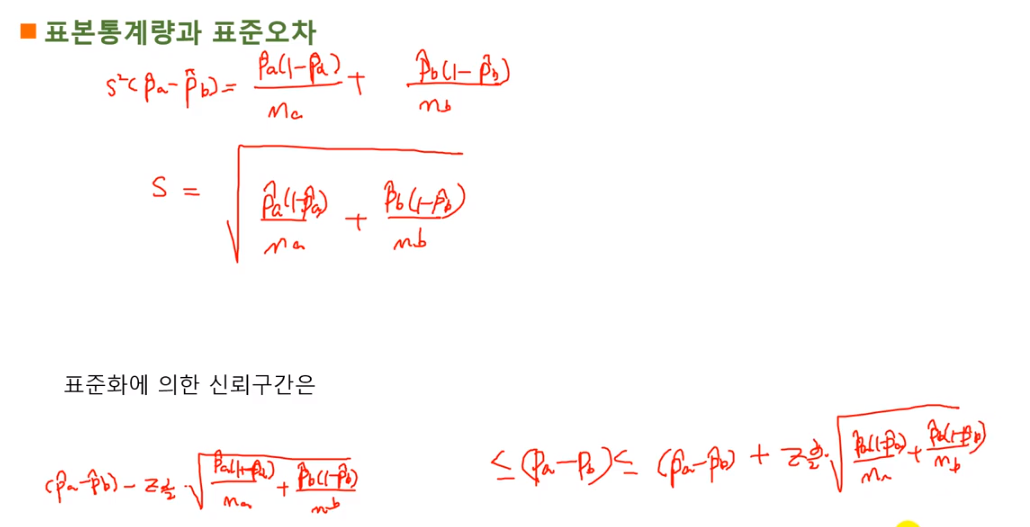 표본통계량과 표준오차
s²(p̂a-p̂b)= p̂a(1-p̂a)/na + p̂b(1-p̂b)/nb
S = √(p̂a(1-p̂a)/na + p̂b(1-p̂b)/nb)
표준화에 의한 신뢰구간은
(p̂a-p̂b)-zα/2·√(p̂a(1-p̂a)/na + p̂b(1-p̂b)/nb) ≤(pa-pb)≤ (p̂a-p̂b) + zα/2·√(p̂a(1-p̂a)/na + p̂b(1-p̂b)/nb)